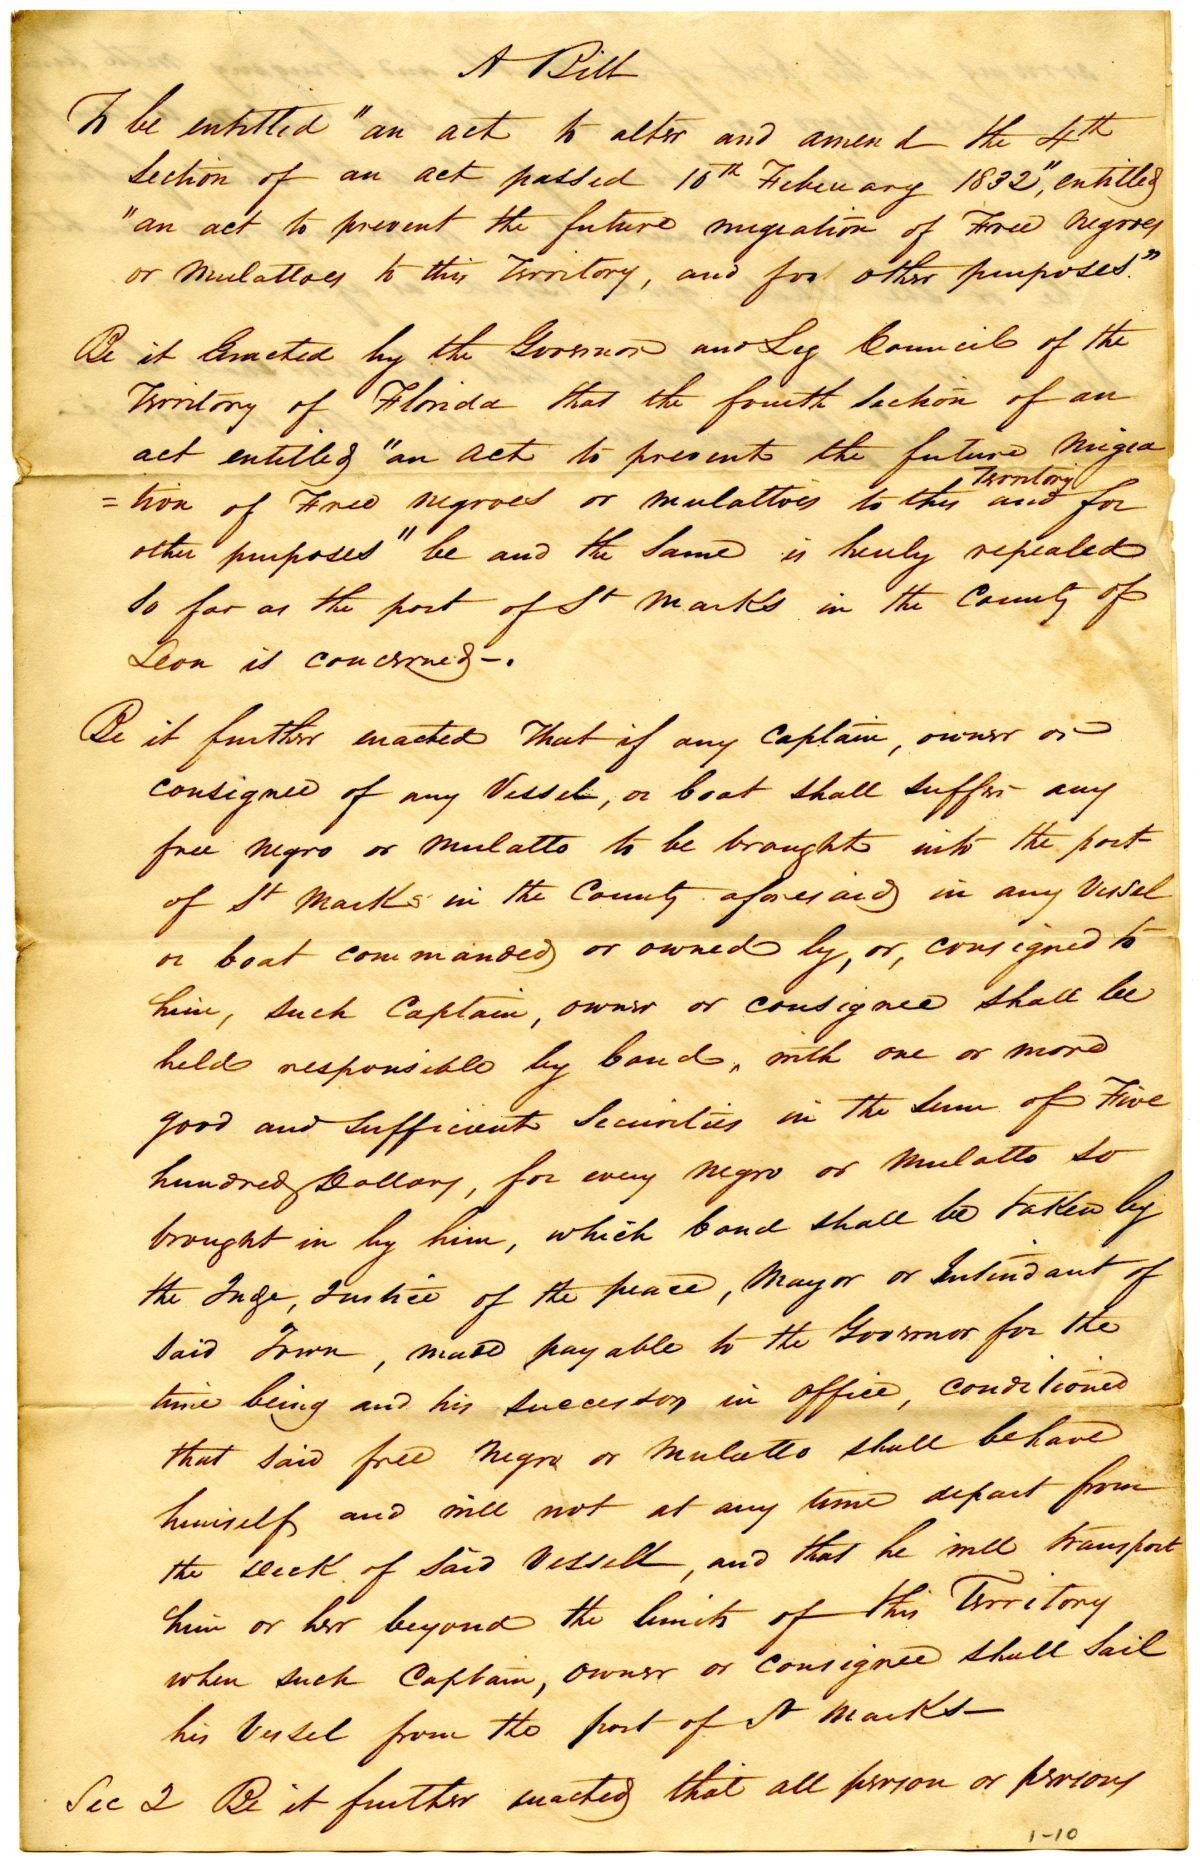 A Bill
To be entitled "an act to alter and amend the 4th
Section of an act passed 10th February 1832", entitled
"an act to prevent the future migration of Free Negroes
or Mulattoes to this Territory, and for other purposes."
Be it Enacted by the Governor and Leg Council of the
Territory of Florida that the fourth Section of an
act entitled "an Act to prevent the future Migra
=tion of Free negroes or mulattoes to this Territory and for
other purposes" be and the Same is hereby repealed
So far as the port of St Marks in the County of
Leon is concerned-.
Be it further enacted That if any Captain, owner or
consignee of any Vessel, or boat shall suffer any
free negro or mulatto to be brought into the port
of St Marks in the County aforesaid in any Vessel
or boat commanded or owned by, or, consigned to
him, such Captain, owner or consignee shall be
held responsible by bond, with one or more
good and sufficient Securities in the sum of Five
hundred Dollars, for every negro or mulatto so
brought in by him, which bond shall be taken by
the Juge, Justice of the peace, Mayor or Intendant of
Said Town, made payable to the Governor for the
time being and his successors in office, conditioned
that said free Negro or Mulatto shall behave
himself and will not at any time depart from
the deck of Said Vessell, and that he will transport
him or her beyond the limits of this Territory
when such Captain, owner or consignee shall Sail
his Vessel from the port of St Marks—
Sec 2 Be it further enacted that all person or persons
1-10